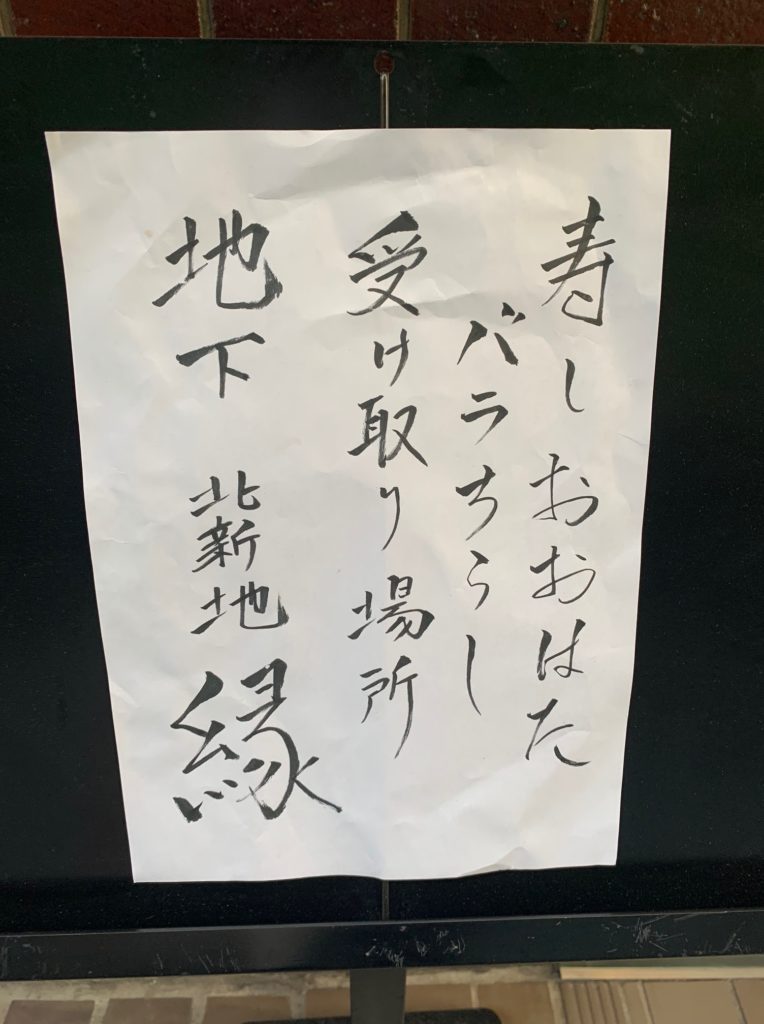 寿しおおはた
バラちらし
受け取り場所
地下 北新地 縁